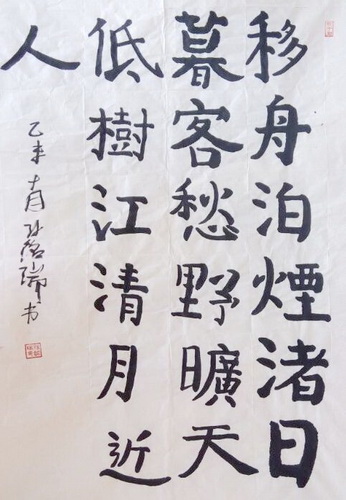 移舟泊煙渚日
暮客愁野曠天
低樹江清月近
人
乙未 瑞书